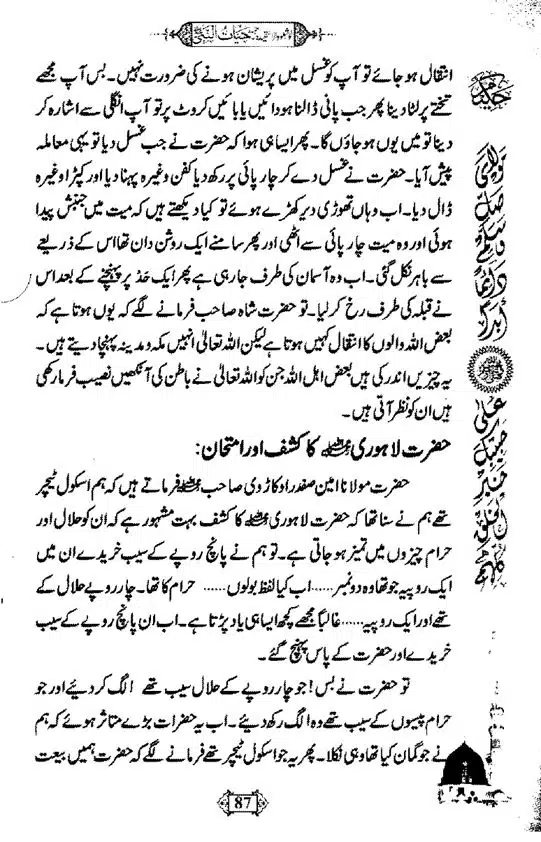 حیات النبی
انتقال ہو جائے تو آپ کو غسل میں پریشان ہونے کی ضرورت نہیں۔ بس آپ مجھے
تختے پر لٹا دینا پھر جب پانی ڈالنا ہو دائیں یا بائیں کروٹ پر تو آپ انگلی سے اشارہ کر
دینا تو میں یوں ہو جاؤں گا۔ پھر ایسا ہی ہوا کہ حضرت نے جب غسل دیا تو یہی معاملہ
پیش آیا۔ حضرت نے غسل دے کر چارپائی پر رکھ دیا کفن وغیرہ پہنا دیا اور کپڑا وغیرہ
ڈال دیا۔ اب وہاں تھوڑی دیر کھڑے ہوئے تو کیا دیکھتے ہیں کہ میت میں جنبش پیدا
ہوئی اور وہ میت چارپائی سے اٹھی اور پھر سامنے ایک روشن دان تھا اس کے ذریعے
سے باہر نکل گئی۔ اب وہ آسمان کی طرف جا رہی ہے پھر ایک حد پر پہنچنے کے بعد اس
نے قبلہ کی طرف رخ کر لیا۔ تو حضرت شاہ صاحب فرمانے لگے کہ یوں ہوتا ہے کہ
بعض اللہ والوں کا انتقال کہیں ہوتا ہے لیکن اللہ تعالیٰ انہیں مکہ و مدینہ پہنچا دیتے ہیں۔
یہ چیزیں اندر کی ہیں بعض اہل اللہ جن کو اللہ تعالیٰ نے باطن کی آنکھیں نصیب فرما رکھی
ہیں ان کو نظر آتی ہیں۔
حضرت لاہوری رحمۃ اللہ علیہ کا کشف اور امتحان:
حضرت مولانا امین صفدر اوکاڑوی صاحب رحمۃ اللہ علیہ فرماتے ہیں کہ ہم اسکول ٹیچر
تھے ہم نے سنا تھا کہ حضرت لاہوری رحمۃ اللہ علیہ کا کشف بہت مشہور ہے کہ ان کو حلال اور
حرام چیزوں میں تمیز ہو جاتی ہے۔ تو ہم نے پانچ روپے کے سیب خریدے ان میں
ایک روپیہ جو تھا وہ دو نمبر ..... اب کیا لفظ بولوں ...... حرام کا تھا۔ چار روپے حلال کے
تھے اور ایک روپیہ ..... غالباً مجھے کچھ ایسا ہی یاد پڑتا ہے۔ اب ان پانچ روپے کے سیب
خریدے اور حضرت کے پاس پہنچ گئے۔
تو حضرت نے بس! جو چار روپے کے حلال سیب تھے الگ کر دیئے اور جو
حرام پیسوں کے سیب تھے وہ الگ رکھ دیئے۔ اب یہ حضرات بڑے متاثر ہوئے کہ ہم
نے جو گمان کیا تھا وہی نکلا۔ پھر یہ جو اسکول ٹیچر تھے فرمانے لگے کہ حضرت ہمیں بیعت
87
یا رب صل وسلم دائما ابدا
علی حبیبک خیر الخلق کلہم